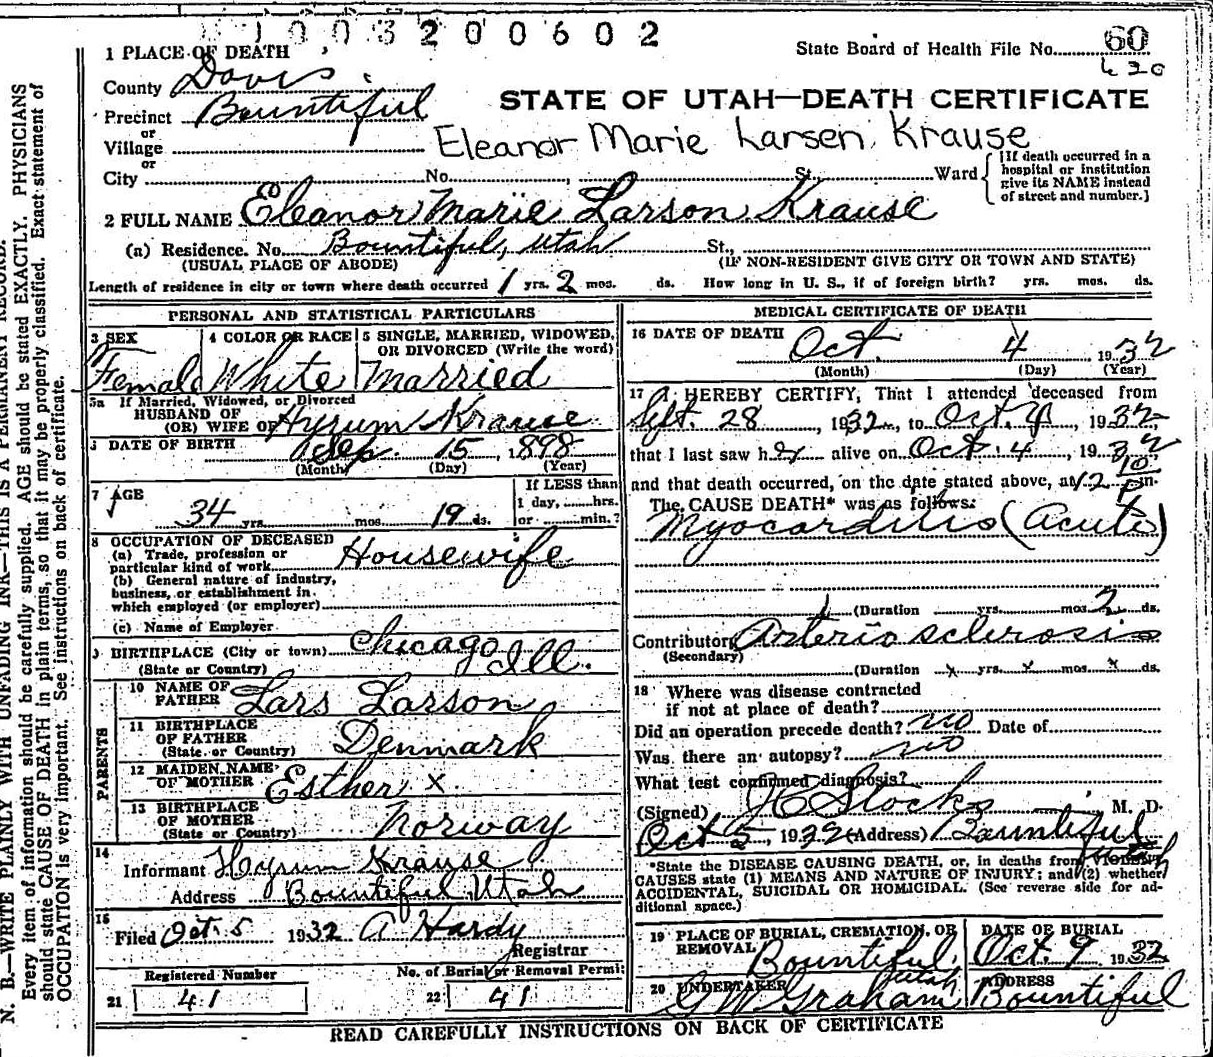 1003200602
1 PLACE OF DEATH
State Board of Health File No. 60
620
County Davis
STATE OF UTAH—DEATH CERTIFICATE
Precinct Bountiful
or
Village
Eleanor Marie Larsen Krause
or
City No. , St., Ward
{If death occurred in a
hospital or institution
give its NAME instead
of street and number.}
2 FULL NAME Eleanor Marie Larson Krause
(a) Residence. No. Bountiful, Utah St.,
(USUAL PLACE OF ABODE) (IF NON-RESIDENT GIVE CITY OR TOWN AND STATE)
Length of residence in city or town where death occurred 1 yrs. 2 mos. ds. How long in U. S., if of foreign birth? yrs. mos. ds.
PERSONAL AND STATISTICAL PARTICULARS
3 SEX
Female
4 COLOR OR RACE
White
5 SINGLE, MARRIED, WIDOWED,
OR DIVORCED (Write the word)
Married
5a If Married, Widowed, or Divorced
HUSBAND OF
(OR) WIFE OF Hyrum Krause
DATE OF BIRTH Sep. 15, 1898
(Month) (Day) (Year)
7 AGE
34 yrs. mos. 19 ds.
If LESS than
1 day, hrs.
or min.?
8 OCCUPATION OF DECEASED
(a) Trade, profession or
particular kind of work Housewife
(b) General nature of industry,
business, or establishment in
which employed (or employer)
(c) Name of Employer
BIRTHPLACE (City or town) Chicago Ill.
(State or Country)
PARENTS
10 NAME OF
FATHER Lars Larson
11 BIRTHPLACE
OF FATHER
(State or Country) Denmark
12 MAIDEN NAME
OF MOTHER Esther X
13 BIRTHPLACE
OF MOTHER
(State or Country) Norway
14
Informant Hyrum Krause
Address Bountiful, Utah
15
Filed Oct. 5 1932 A Hardy
Registrar
Registered Number No. of Burial or Removal Permit
21 41 22 41
MEDICAL CERTIFICATE OF DEATH
16 DATE OF DEATH Oct. 4, 1932
(Month) (Day) (Year)
17 I HEREBY CERTIFY, That I attended deceased from
Sept. 28, 1932, to Oct. 4, 1932
that I last saw her alive on Oct. 4, 1932
and that death occurred, on the date stated above, at 12 10 P m.
The CAUSE DEATH* was as follows:
Myocarditis (Acute)
(Duration yrs. mos. 2 ds.
Contributory Arterio sclerosis
(Secondary)
(Duration x yrs. x mos. x ds.
18 Where was disease contracted
if not at place of death?
Did an operation precede death? no Date of
Was there an autopsy? no
What test confirmed diagnosis?
(Signed) J C Stocks M. D.
Oct 5, 1932 (Address) Bountiful Utah
*State the DISEASE CAUSING DEATH, or, in deaths from VIOLENT
CAUSES state (1) MEANS AND NATURE OF INJURY; and (2) whether
ACCIDENTAL, SUICIDAL OR HOMICIDAL. (See reverse side for ad-
ditional space.)
19 PLACE OF BURIAL, CREMATION, OR
REMOVAL Bountiful, Utah
DATE OF BURIAL
Oct. 9 1932
20 UNDERTAKER
G W Graham
ADDRESS
Bountiful
READ CAREFULLY INSTRUCTIONS ON BACK OF CERTIFICATE
N. B.—WRITE PLAINLY WITH UNFADING INK—THIS IS A PERMANENT RECORD.
Every item of information should be carefully supplied. AGE should be stated EXACTLY. PHYSICIANS
should state CAUSE OF DEATH in plain terms, so that it may be properly classified. Exact statement of
OCCUPATION is very important. See instructions on back of certificate.